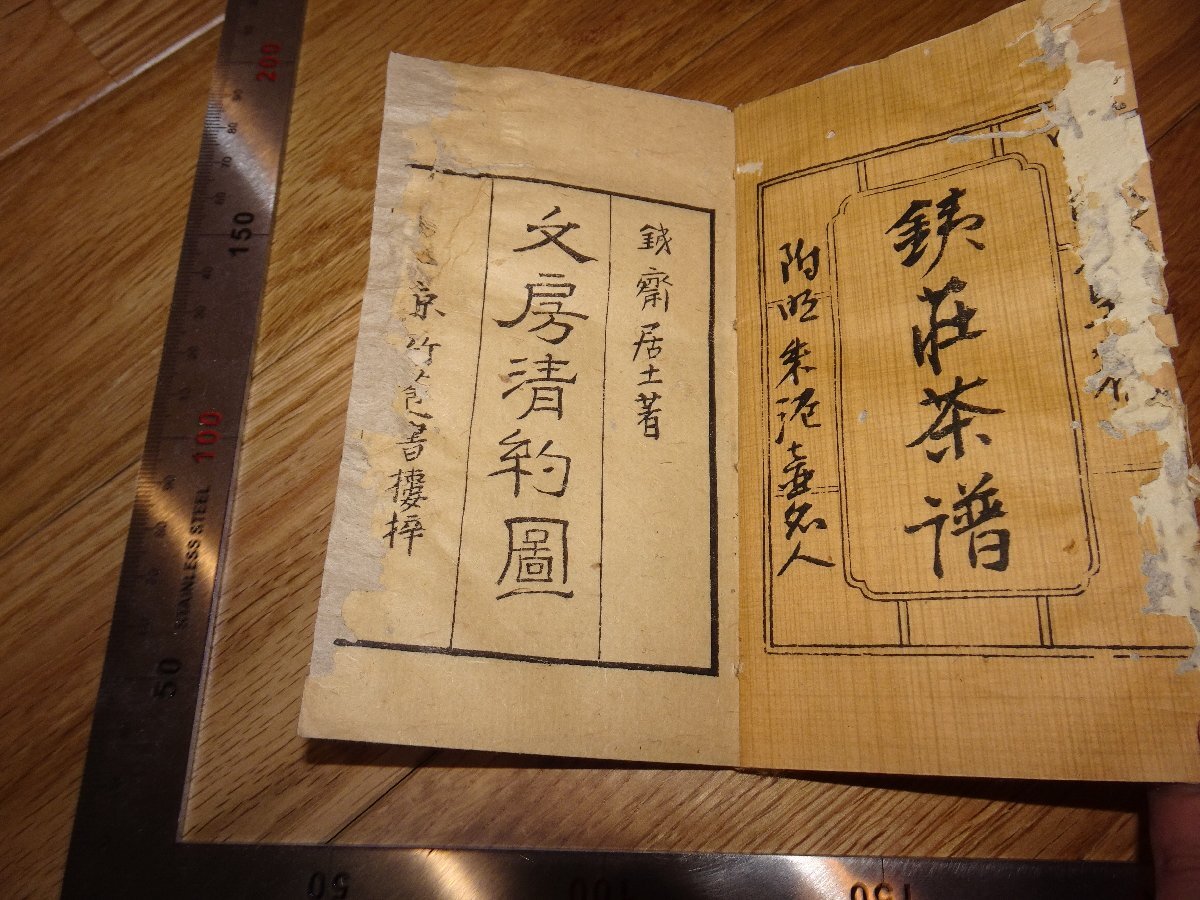 銕莊茶譜
附明朱泥壷名人
鉄齋居士著
文房清約圖
京竹苞書樓梓
200
150
100
50
STAINLESS STEEL
50
100
150